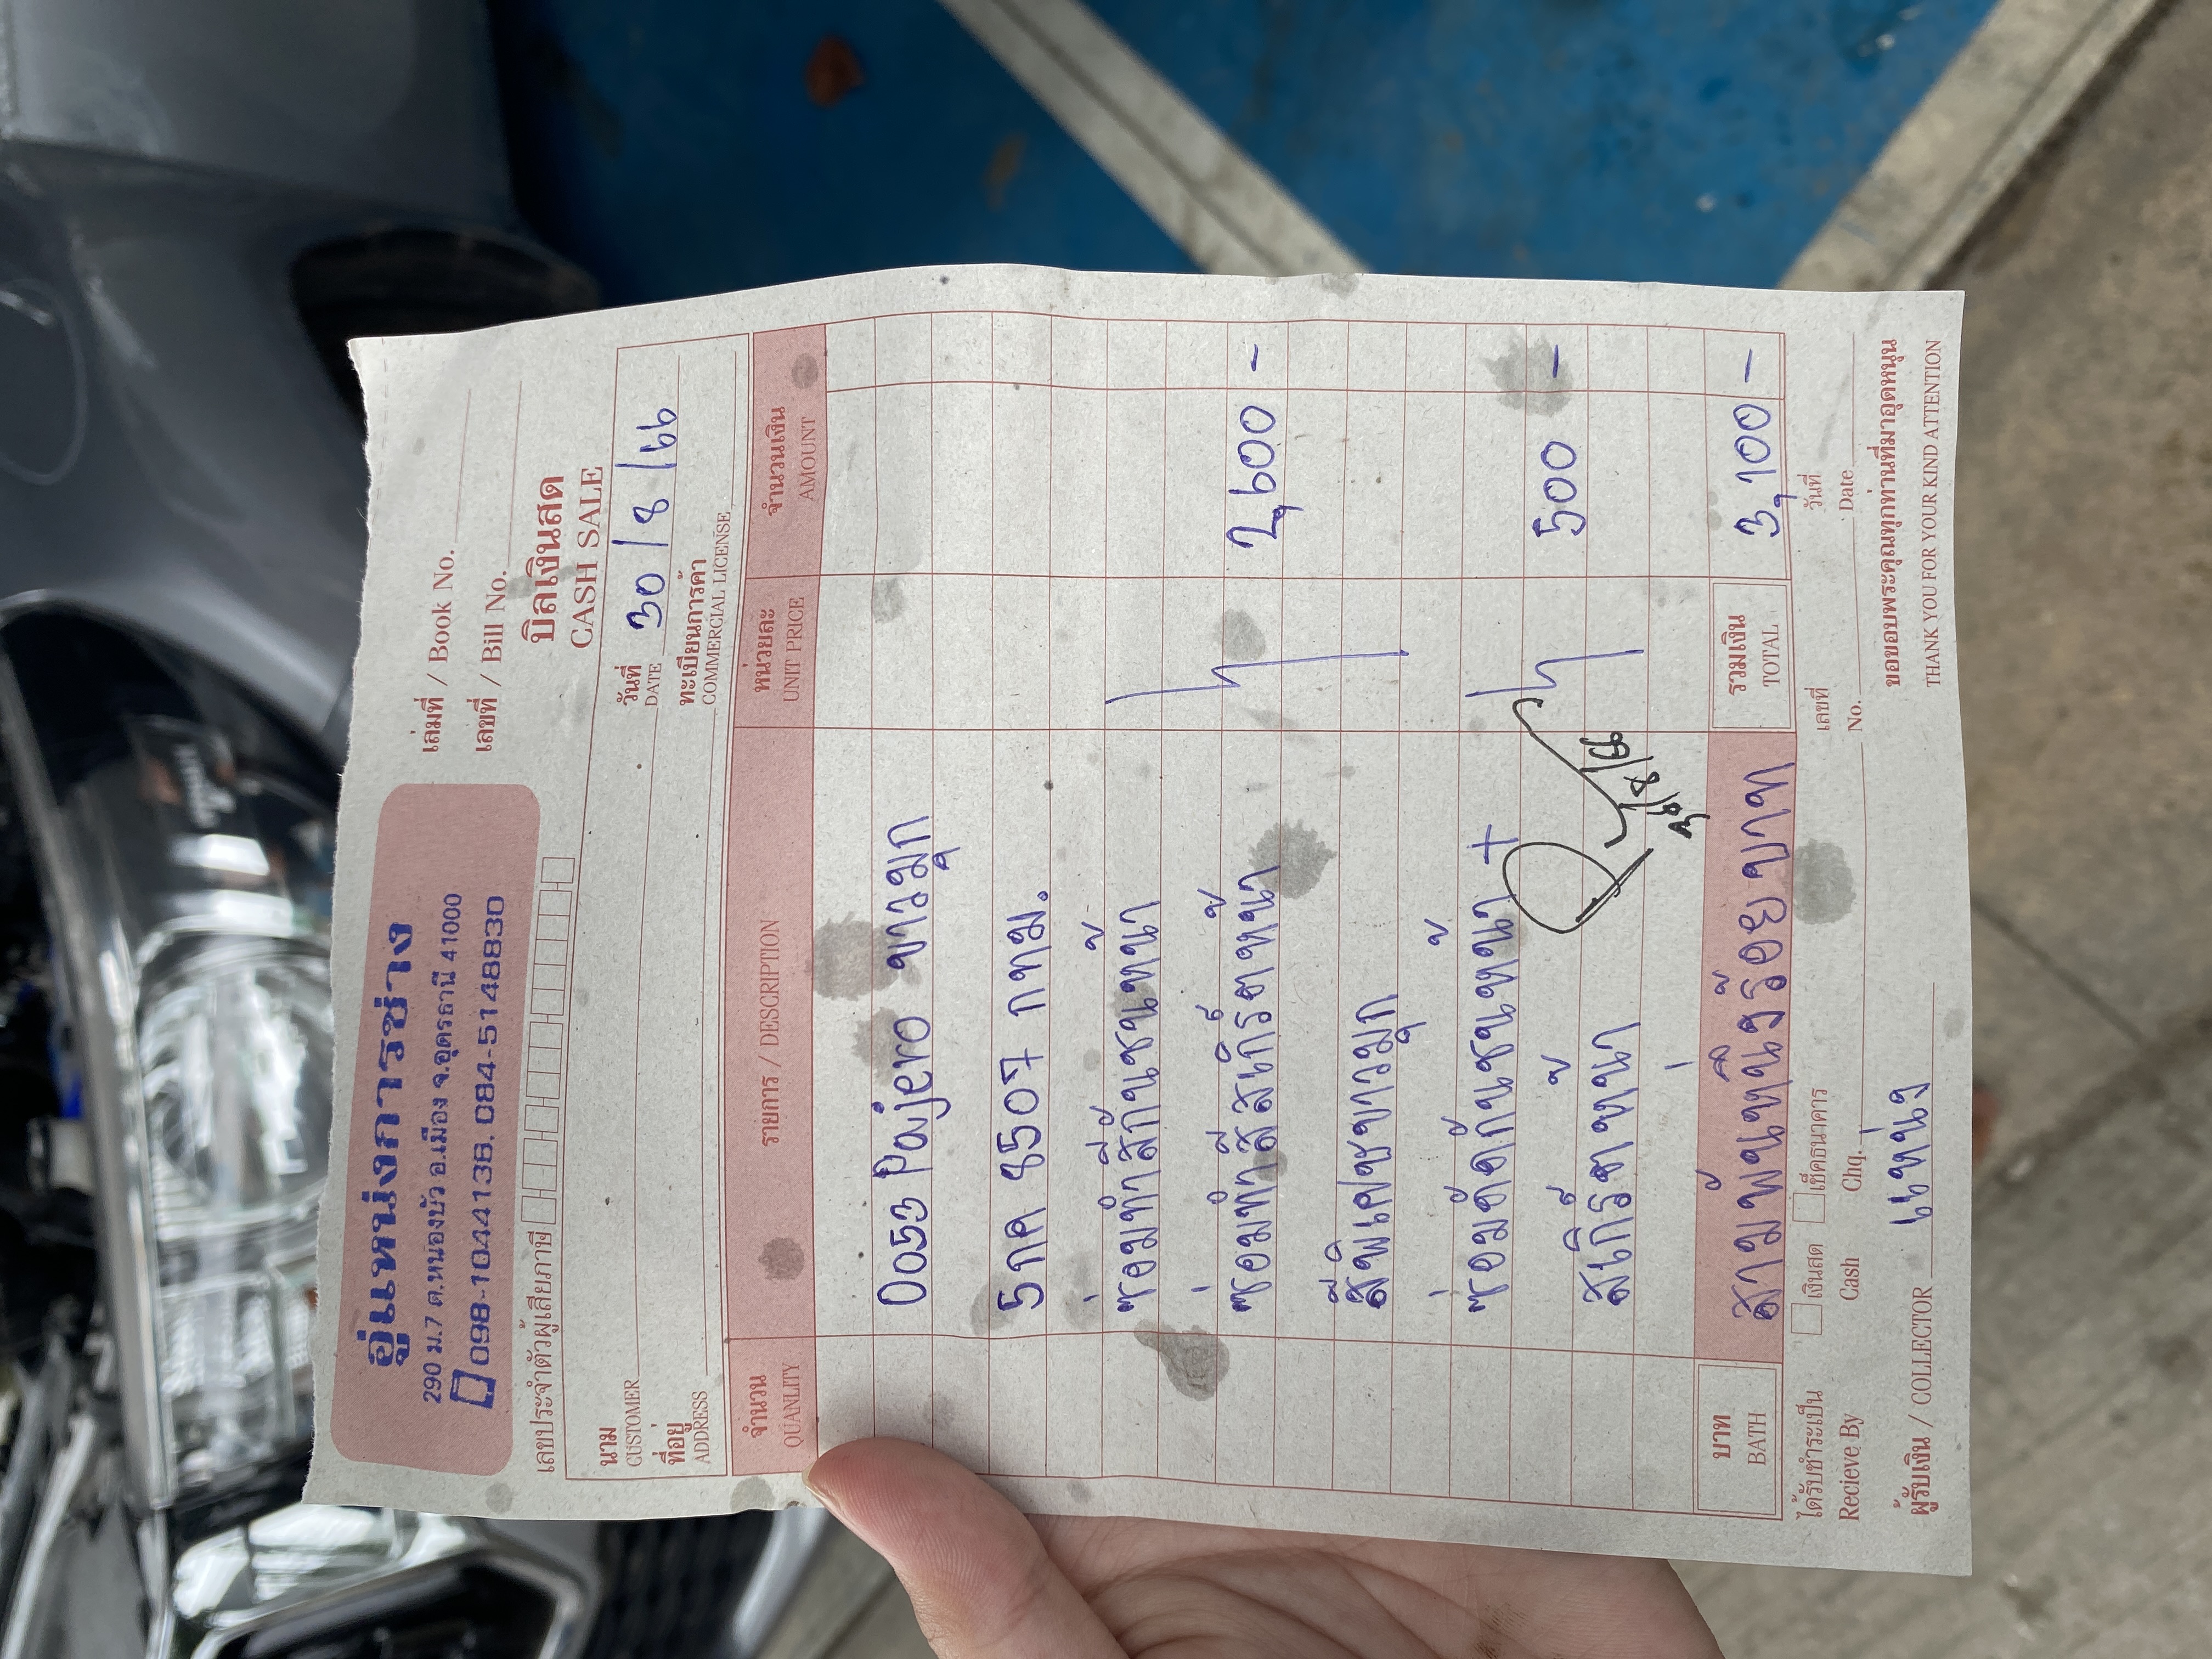 อู่แหน่งการช่าง
290 ม.7 ต.หนองบัว อ.เมือง จ.อุดรธานี 41000
098-1044138. 084-5148830
เล่มที่ / Book No.
เลขที่ / Bill No.
บิลเงินสด
CASH SALE
เลขประจำตัวผู้เสียภาษี
วันที่ 30/8/66
DATE
นาม
CUSTOMER
ที่อยู่
ADDRESS
ทะเบียนการค้า
COMMERCIAL LICENSE
จำนวน รายการ / DESCRIPTION หน่วยละ จำนวนเงิน
QUANLITY UNIT PRICE AMOUNT
0053 Pajero ขาวมุก
5กค 8507 กทม.
ซ่อมทำสีกันชนหน้า
ซ่อมทำสีสเกิร์ตหน้า 2,600 -
สีพิเศษขาวมุก
ซ่อมดัดกันชนหน้า +
สเกิร์ตหน้า 500 -
บาท สามพันหนึ่งร้อยบาท รวมเงิน 3,100 -
BATH TOTAL
ได้รับชำระเป็น เงินสด เช็คธนาคาร เลขที่ วันที่
Recieve By Cash Chq. No. Date
ผู้รับเงิน / COLLECTOR แหน่ง
ขอขอบพระคุณทุกท่านที่มาอุดหนุน
THANK YOU FOR YOUR KIND ATTENTION